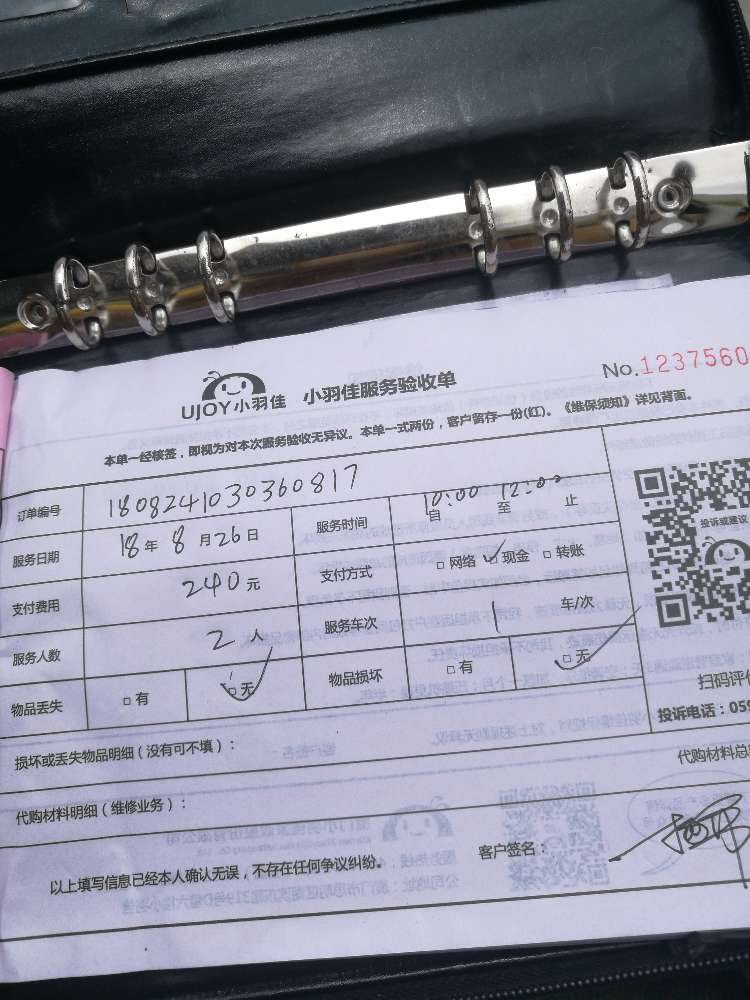 UJOY小羽佳 小羽佳服务验收单 No.1237560
本单一经核签，即视为对本次服务验收无异议。本单一式两份，客户留存一份(红)。《维保须知》详见背面。
订单编号 1808241030360817
服务日期 18年8月26日 服务时间 10:00 自 12:00 至 止
支付费用 240元 支付方式 □网络 □现金 □转账
服务人数 2人 服务车次 1 车/次
物品丢失 □有 □无 物品损坏 □有 □无
投诉或建议
扫码评
投诉电话：059
损坏或丢失物品明细（没有可不填）：
代购材料明细（维修业务）： 代购材料总
以上填写信息已经本人确认无误，不存在任何争议纠纷。 客户签名：